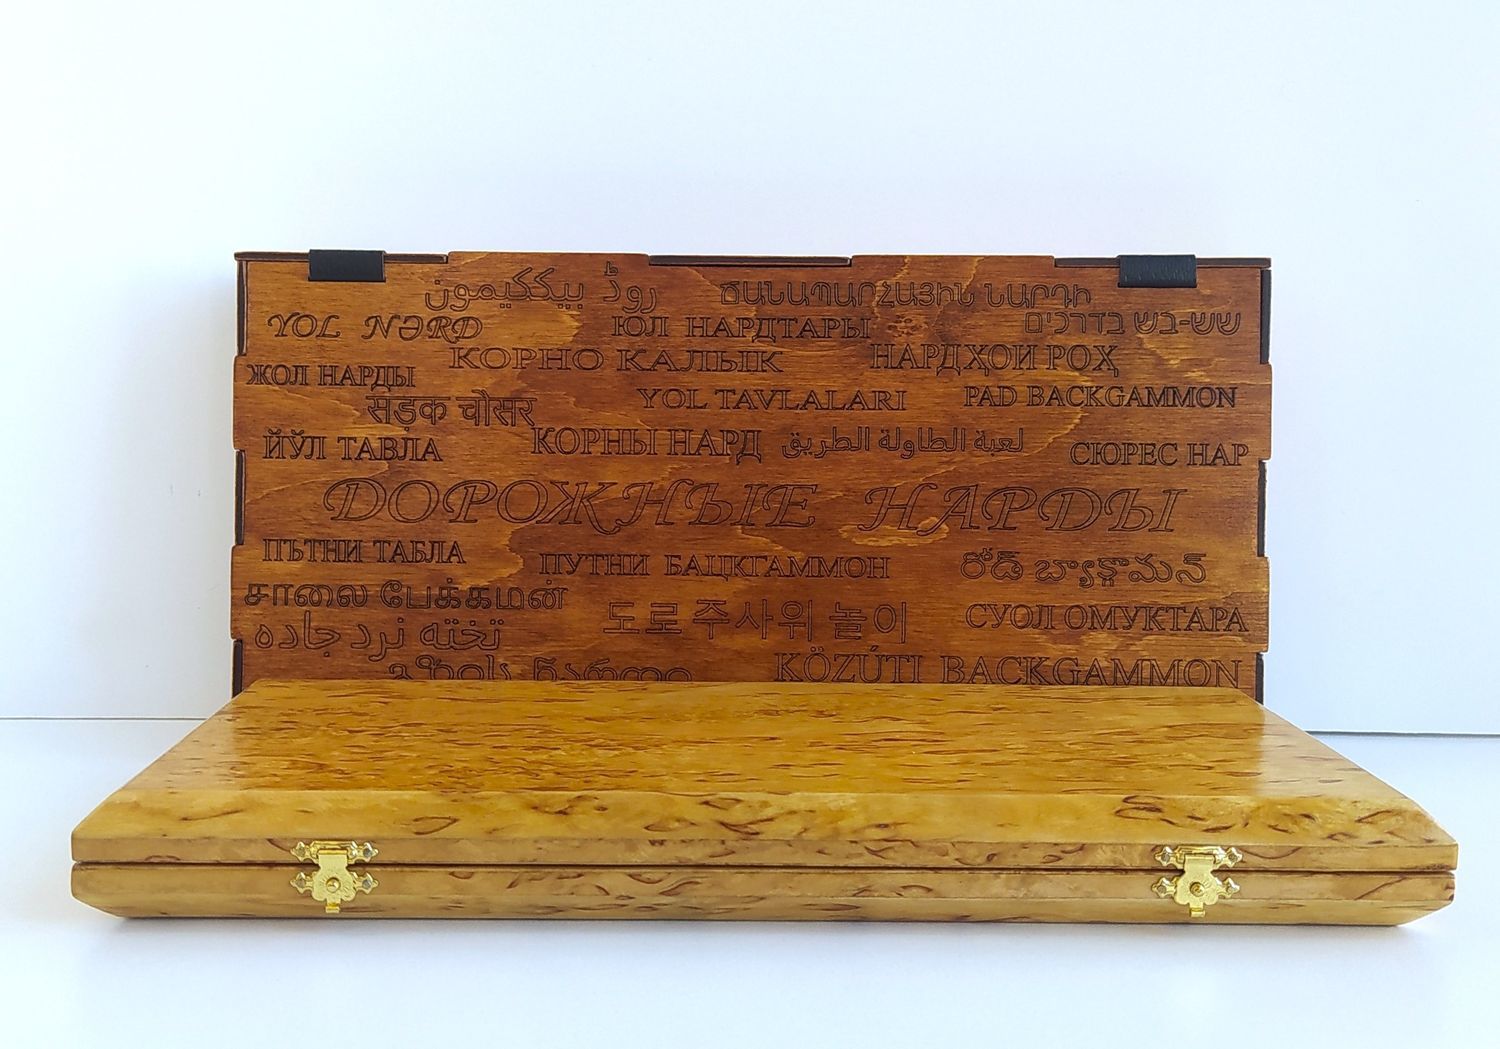 روڈ بیککیمون
ՃԱՆԱՊԱՐՀԱՅԻՆ ՆԱՐԴԻ
YOL NƏRD
ЮЛ НАРДТАРЫ
שש-בש בדרכים
КОРНО КАЛЫК
НАРДҲОИ РОҲ
ЖОЛ НАРДЫ
सड़क चौसर
YOL TAVLALARI
PAD BACKGAMMON
ЙЎЛ ТАВЛА
КОРНЫ НАРД
لعبة الطاولة الطريق
СЮРЕС НАР
ДОРОЖНЫЕ НАРДЫ
ПЪТНИ ТАБЛА
ПУТНИ БАЦКГАММОН
రోడ్ బ్యాక్గామన్
சாலை பேக்கமன்
도로 주사위 놀이
СУОЛ ОМУКТАРА
تخته نرد جاده
გზის ნარდი
KÖZÚTI BACKGAMMON